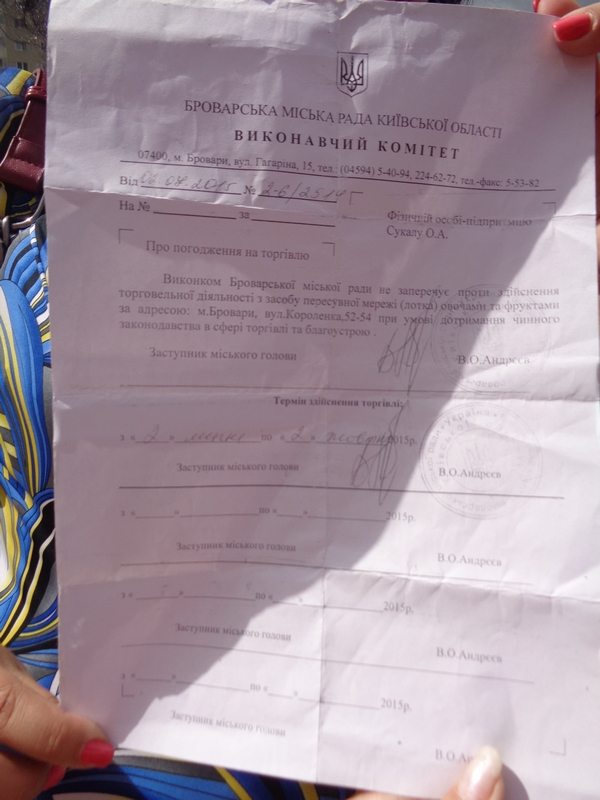 БРОВАРСЬКА МІСЬКА РАДА КИЇВСЬКОЇ ОБЛАСТІ
ВИКОНАВЧИЙ КОМІТЕТ
07400, м. Бровари, вул. Гагаріна, 15, тел.: (04594) 5-40-94, 224-62-72, тел.-факс: 5-53-82
Від 02.07.2015 № 2-6/2514
На № за
Фізичній особі-підприємцю
Сукалу О.А.
Про погодження на торгівлю
Виконком Броварської міської ради не заперечує проти здійснення
торговельної діяльності з засобу пересувної мережі (лотка) овочами та фруктами
за адресою: м.Бровари, вул.Короленка,52-54 при умові дотримання чинного
законодавства в сфері торгівлі та благоустрою .
Заступник міського голови В.О.Андрєєв
Термін здійснення торгівлі:
з « 2 » липня по « 2 » жовтня 2015р.
Заступник міського голови В.О.Андрєєв
з « » по « » 2015р.
Заступник міського голови В.О.Андрєєв
з « » по « » 2015р.
Заступник міського голови В.О.Андрєєв
з « » по « » 2015р.
Заступник міського голови